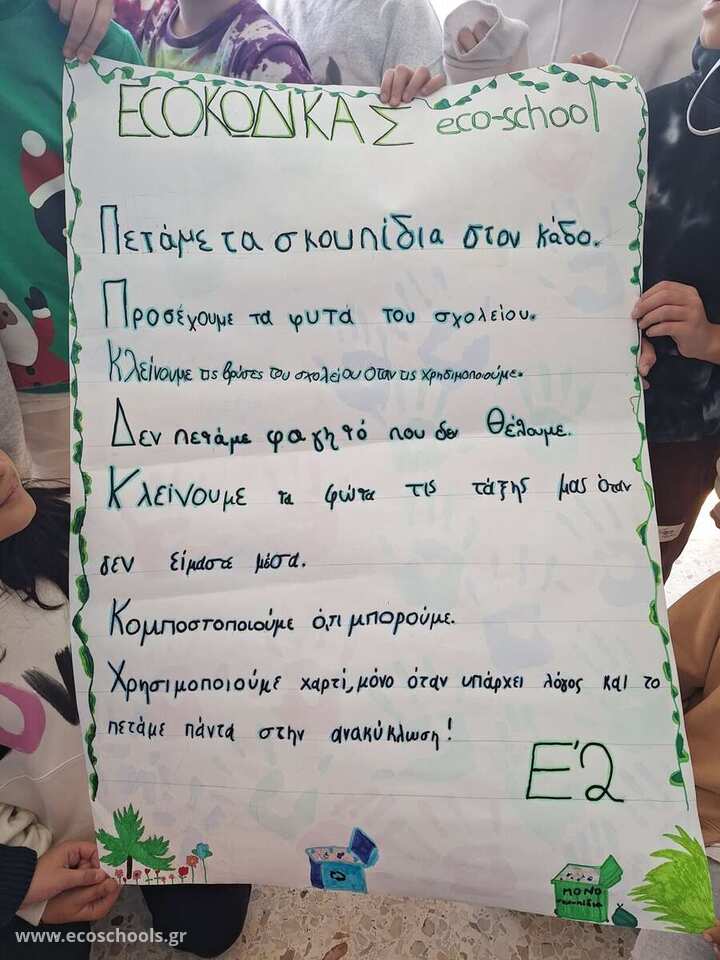 ECOΚΩΔΙΚΑΣ eco-school
Πετάμε τα σκουπίδια στον κάδο.
Προσέχουμε τα φυτά του σχολείου.
Κλείνουμε τις βρύσες του σχολείου όταν τις χρησιμοποιούμε.
Δεν πετάμε φαγητό που δεν θέλουμε.
Κλείνουμε τα φώτα τις τάξης μας όταν
δεν είμαστε μέσα.
Κομποστοποιούμε ό,τι μπορούμε.
Χρησιμοποιούμε χαρτί, μόνο όταν υπάρχει λόγος και το
πετάμε πάντα στην ανακύκλωση!
Ε'2
ΜΟΝΟ
σκουπίδια
www.ecoschools.gr